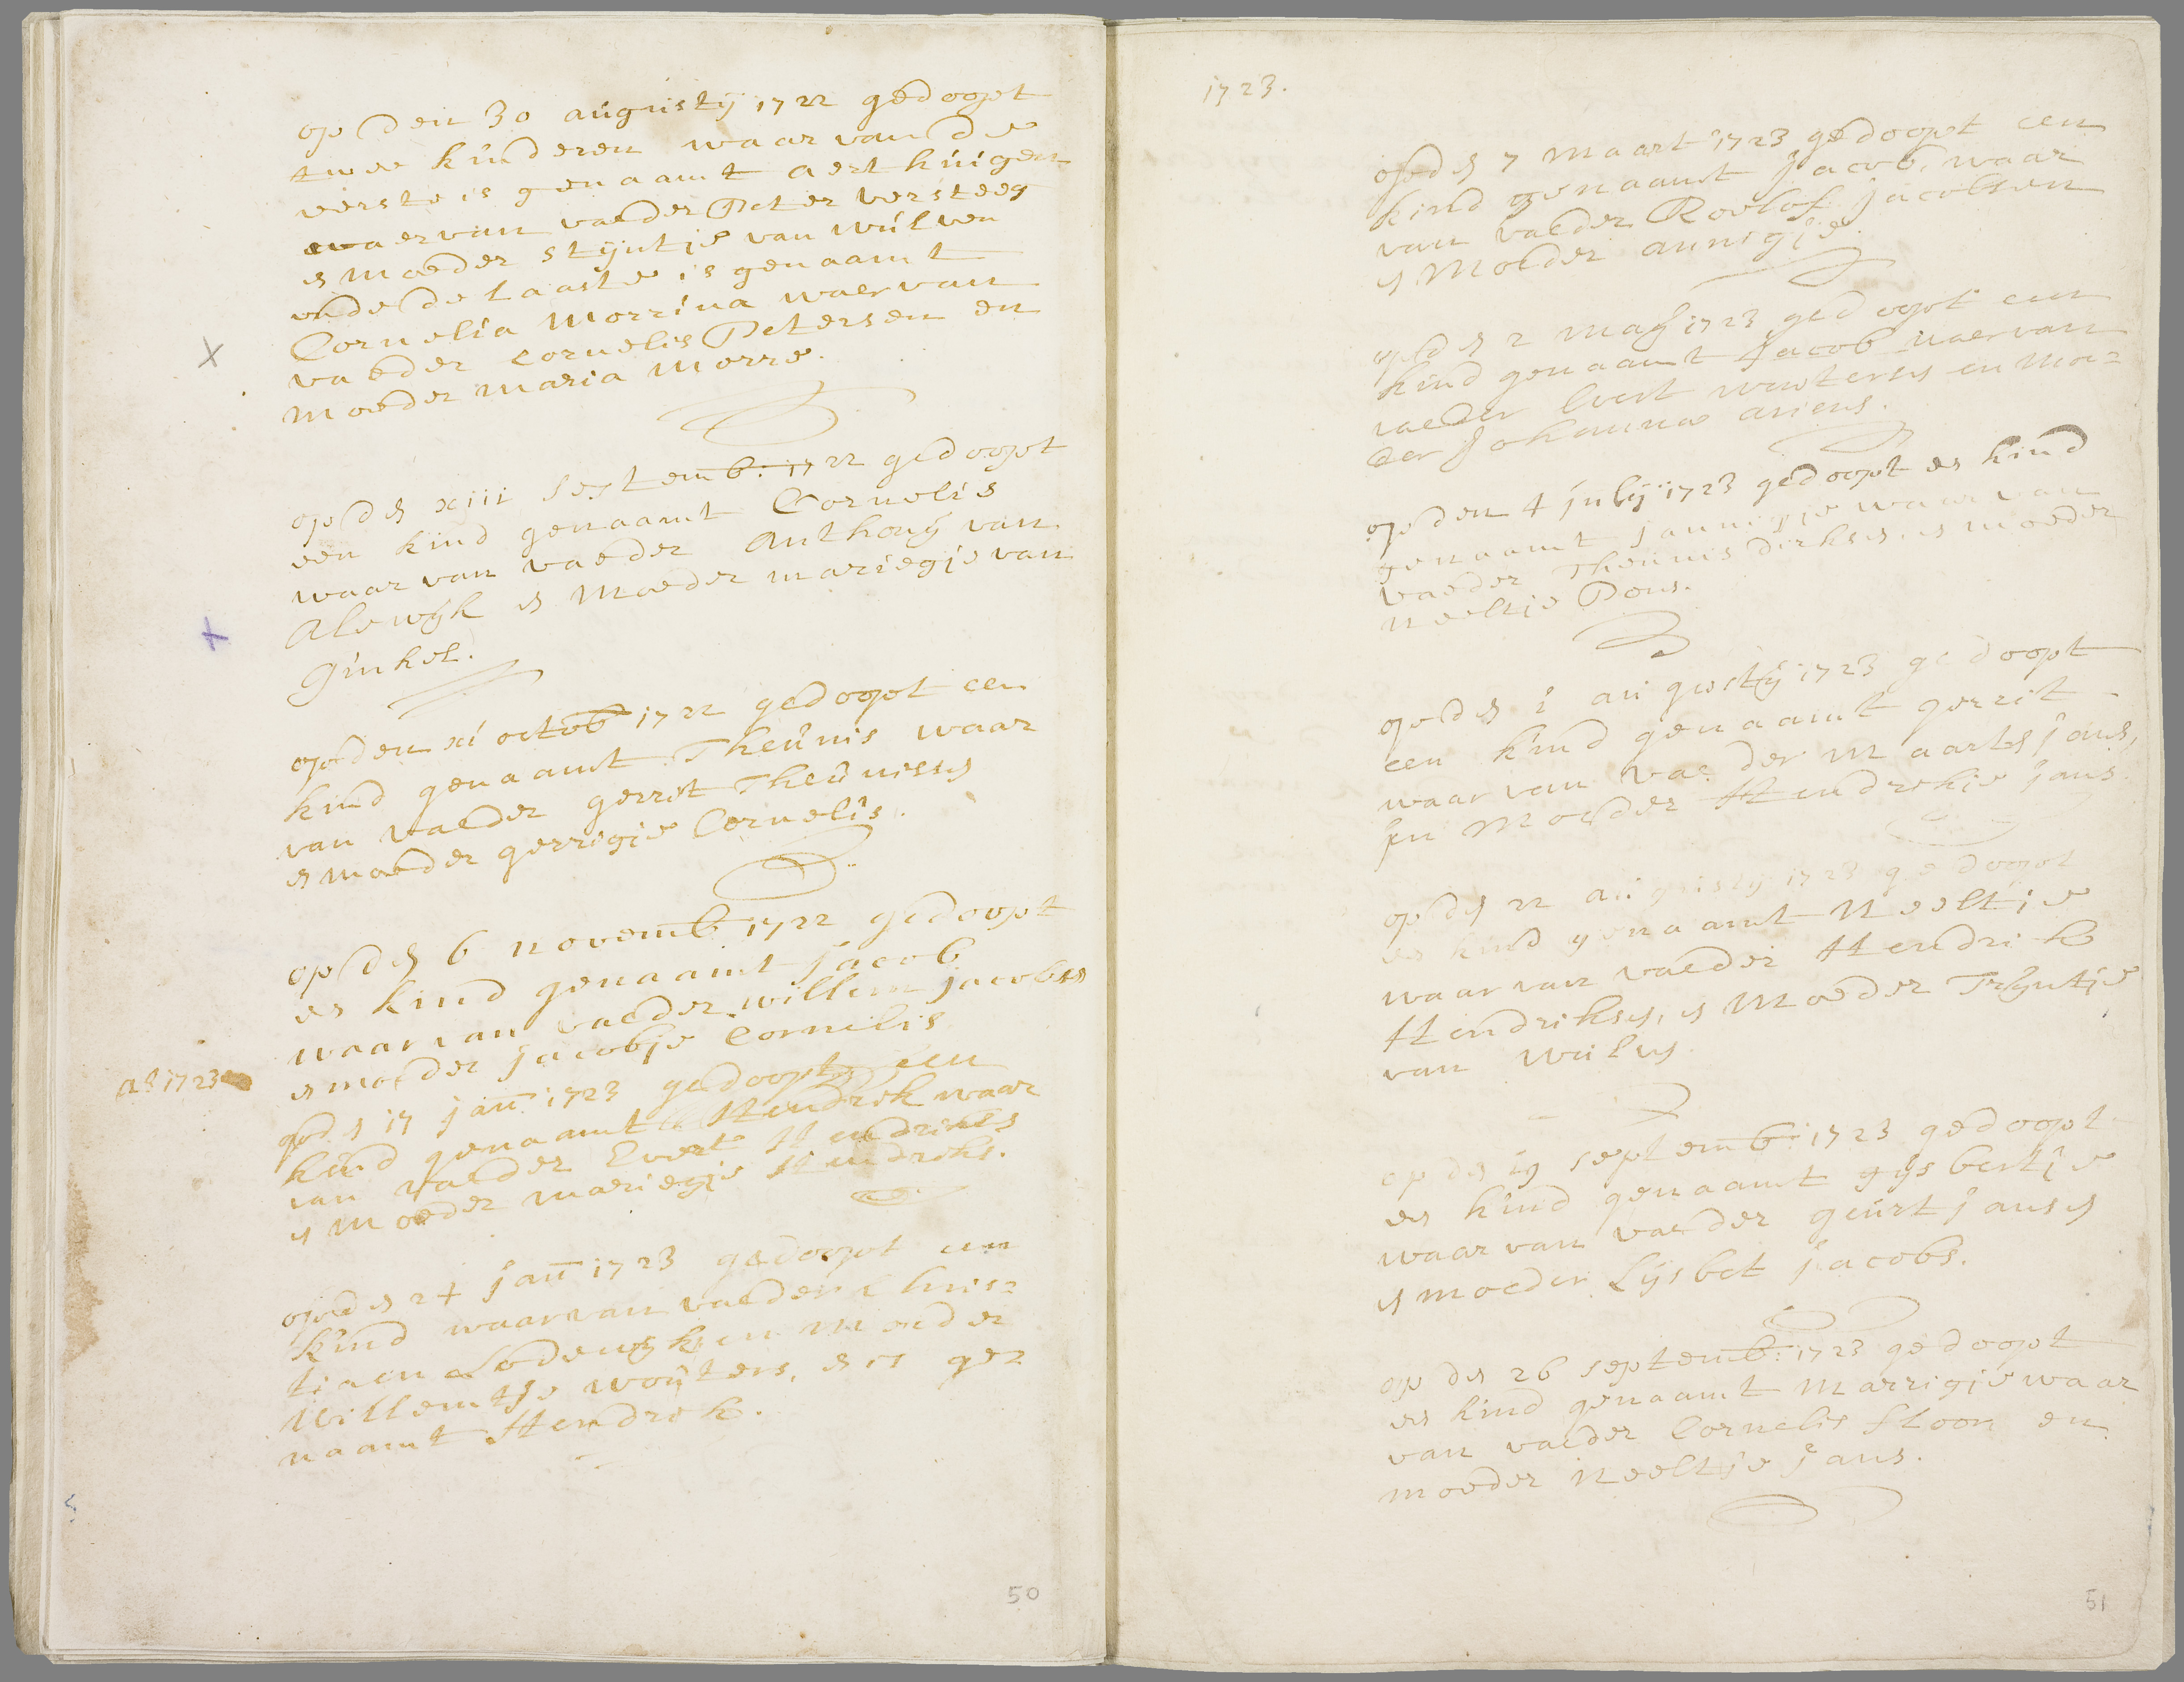 op den 30 augustij 1722 gedoopt
twee kinderen waar van de
eerste is genaamt aert huigen
waervan vaeder Peter versteeg
en moeder stijntje van wulven
ende de laaste is genaamt
Cornelia Morrina waervan
vaeder cornelis Petersen en
moeder maria morre.
op den xiii septemb: 1722 gedoopt
een kind genaamt Cornelis
waar van vaeder Anthonÿ van
Alewÿk en moeder mariegje van
ginkel.
op den xi octob 1722 gedoopt een
kind genaamt Theunis waar
van vaeder gerrit Theunissen
en moeder gerrigje Cornelis.
op den 6 novemb 1722 gedoopt
een kind genaamt jacob
waar van vaeder willem jacobsen
en moeder jacobje Cornelis
Ao 1723
op den 17 jan 1723 gedoopt een
kind genaamt Hendrek waar
van vaeder Evert Hendriksen
en moeder mariegje Hendreks.
op den 24 jan 1723 gedoopt een
kind waar van vaeder Chris=
tiaen Lodewÿk en moeder
Willemtje wouters, en is ge=
naamt Hendrek.
50
1723.
op den 7 Maart 1723 gedoopt een
kind genaamt Jacob, waar
van vaeder Roelof jacobsen
en Moeder annigje.
op den 2 maÿ 1723 gedoopt een
kind genaamt Jacob waer van
vaeder Evert woutersen en moe=
der Johanna ariens.
op den 4 julij 1723 gedoopt een kind
genaamt jannigje waar van
vaeder Theunis dirksen, en moeder
neeltje Pous.
op den 1 augustij 1723 gedoopt
een kind genaamt gerrit
waar van vaeder Maarten jans,
en Moeder Hendrekje jans.
op den 22 augustij 1723 gedoopt
een kind genaamt Neeltje
waar van vaeder Hendrik
Hendriksen, en Moeder Trÿntje
van wulven
op den 19 septemb: 1723 gedoopt
een kind genaamt gijsbertje
waar van vaeder geurt jansen
en moeder Lijsbet jacobs.
op den 26 septemb: 1723 gedoopt
een kind genaamt Marrigje waar
van vaeder Cornelis floor en
moeder Neeltje jans.
51